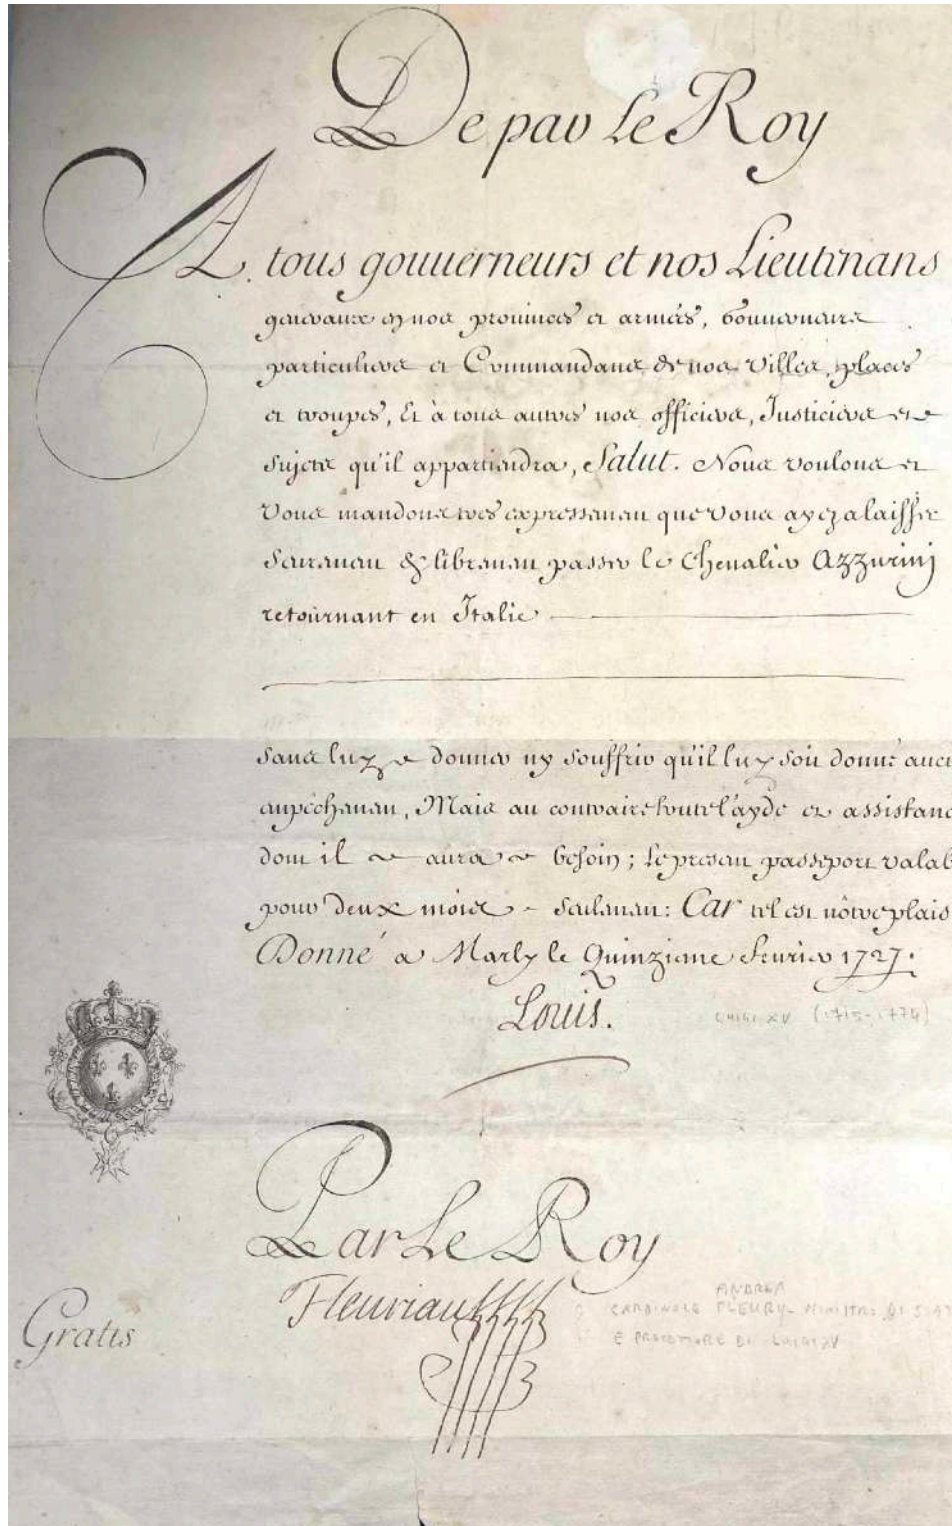 De par le Roy
A tous gouuerneurs et nos Lieutenans
generaux en nos prouinces et armées, Gouuerneurs
particuliers et Commandans de nos Villes, places
et troupes, Et à tous autres nos officiers, Justiciers et
Sujets qu'il appartiendra, Salut. Nous voulons et
Vous mandons tres expressement que vous ayez a laisser
Seurement & librement passer le Cheualier Azzurinj
retournant en Italie
sans luy donner ny souffrir qu'il luy soit donné aucu
empêchement, Mais au contraire toute l'ayde et assistanc
dont il aura besoin; Le present passeport valab
pour deux mois Seulement: Car tel est nôtre plais
Donné a Marly le Quinzieme feurier 1727.
Louis.
LUIGI XV (1715-1774)
Par Le Roy
Fleuriau
ANDREA
CARDINALE FLEURY - MINISTRO DI
E DI LUIGI XV
Gratis